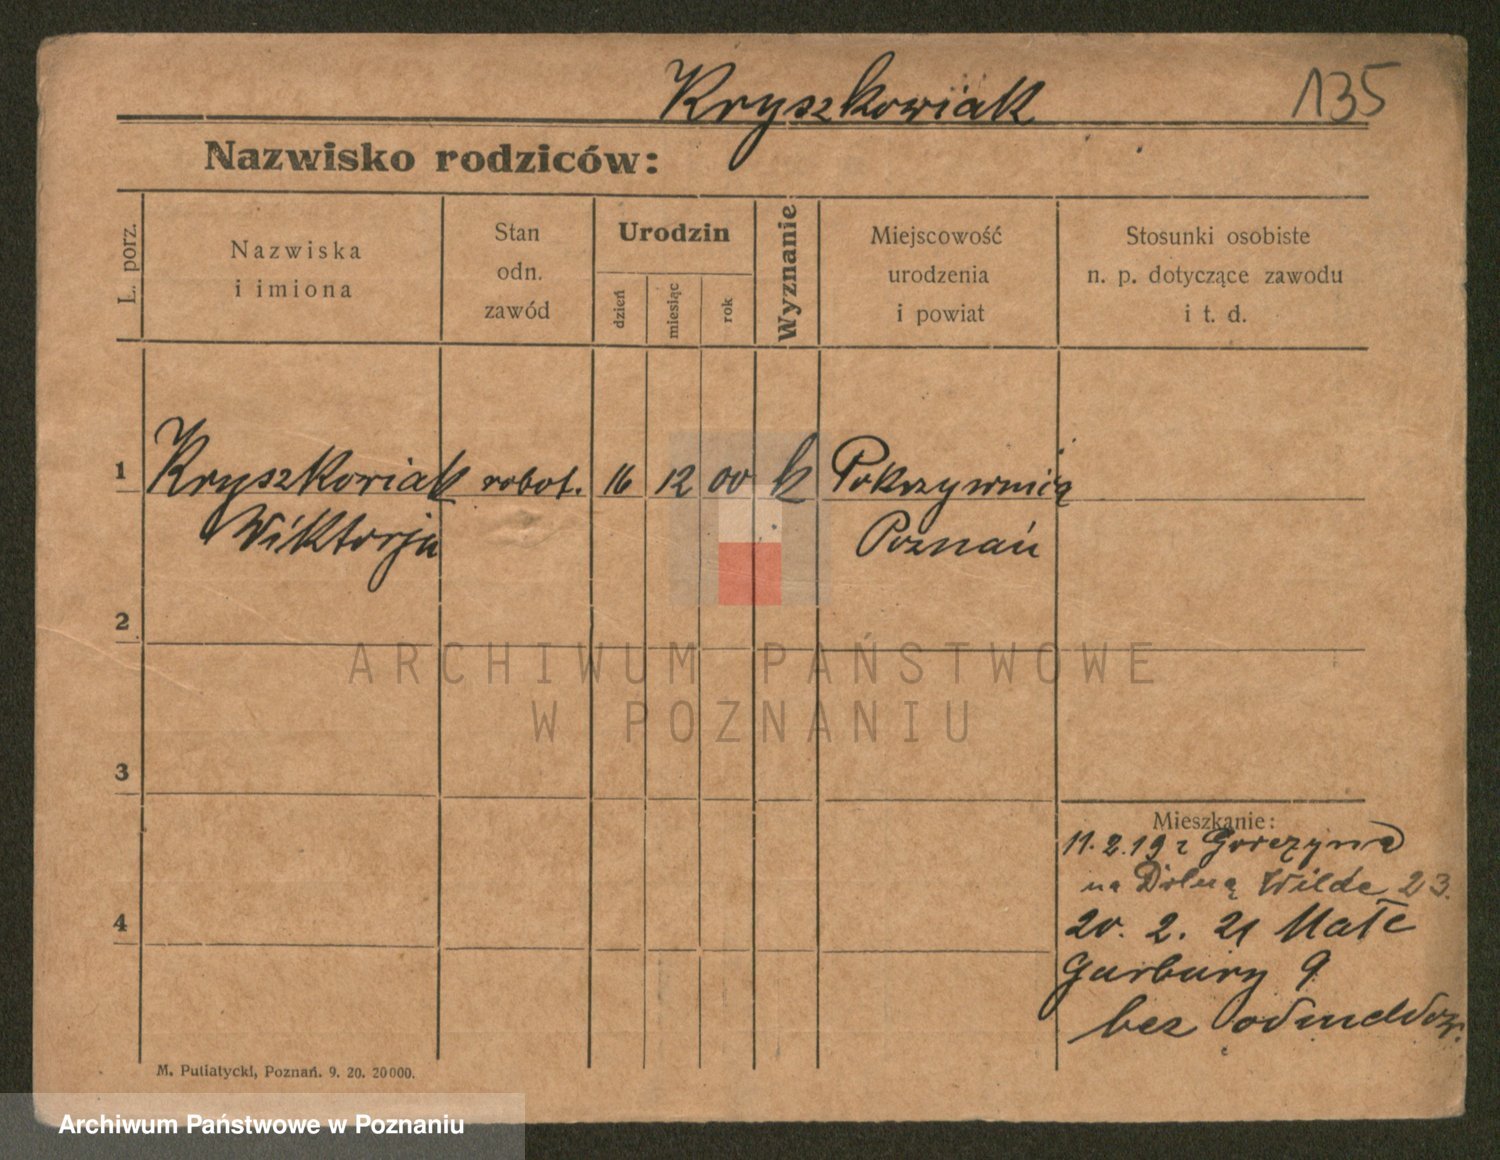 Kryszkowiak 135
Nazwisko rodziców:
L. porz.
Nazwiska
i imiona
Stan
odn.
zawód
Urodzin
dzień
miesiąc
rok
Wyznanie
Miejscowość
urodzenia
i powiat
Stosunki osobiste
n. p. dotyczące zawodu
i t. d.
1 Kryszkowiak robot. 16 12 00 k
Wiktorja Poznań
2
3
4
ARCHIWUM PAŃSTWOWE
W POZNANIU
Mieszkanie:
11.2.19 z
na Dolną Wildę 23.
20. 2. 21 Małe
Garbary 9
bez
M. Putiatycki, Poznań. 9. 20. 20000.
Archiwum Państwowe w Poznaniu